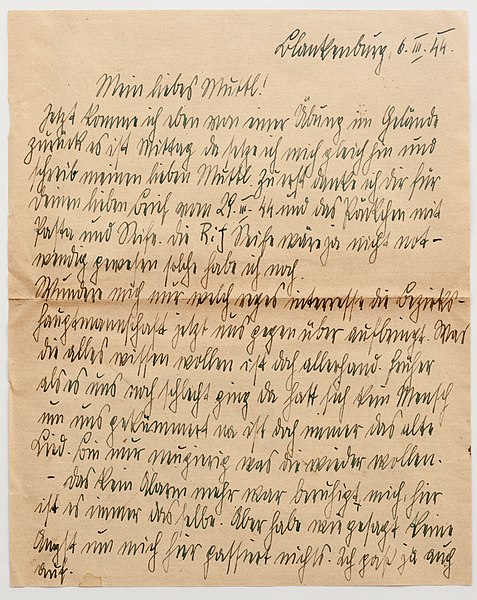 Blankenburg, 6. III. 44.
Mein liebes Muttl!
Jetzt komme ich eben von einer Übung im Gelände
zurück es ist Mittag da setze ich mich gleich hin und
schreib meinem lieben Muttl. Zuerst danke ich dir für
Deinen lieben Brief vom 29. II. 44 und das Päckchen mit
Pasta und Seife. die R.i.f Seife wäre ja nicht not-
wendig gewesen solche habe ich noch.
Wundere mich nur welch reges interesse die Bezirks-
hauptmannschaft jetzt uns gegen über aufbringt. Was
die alles wissen wollen ist doch allerhand. früher
als es uns noch schlecht ging da hatt sich kein Mensch
um uns gekümmert na ist doch immer das alte
Lied. bin nur neugierig was die wieder wollen.
- das kein Alarm mehr war beruhigt mich, hier
ist es immer das selbe. Aber habe wie gesagt keine
Angst um mich hier passiert nichts. Ich paß ja auch
auf.